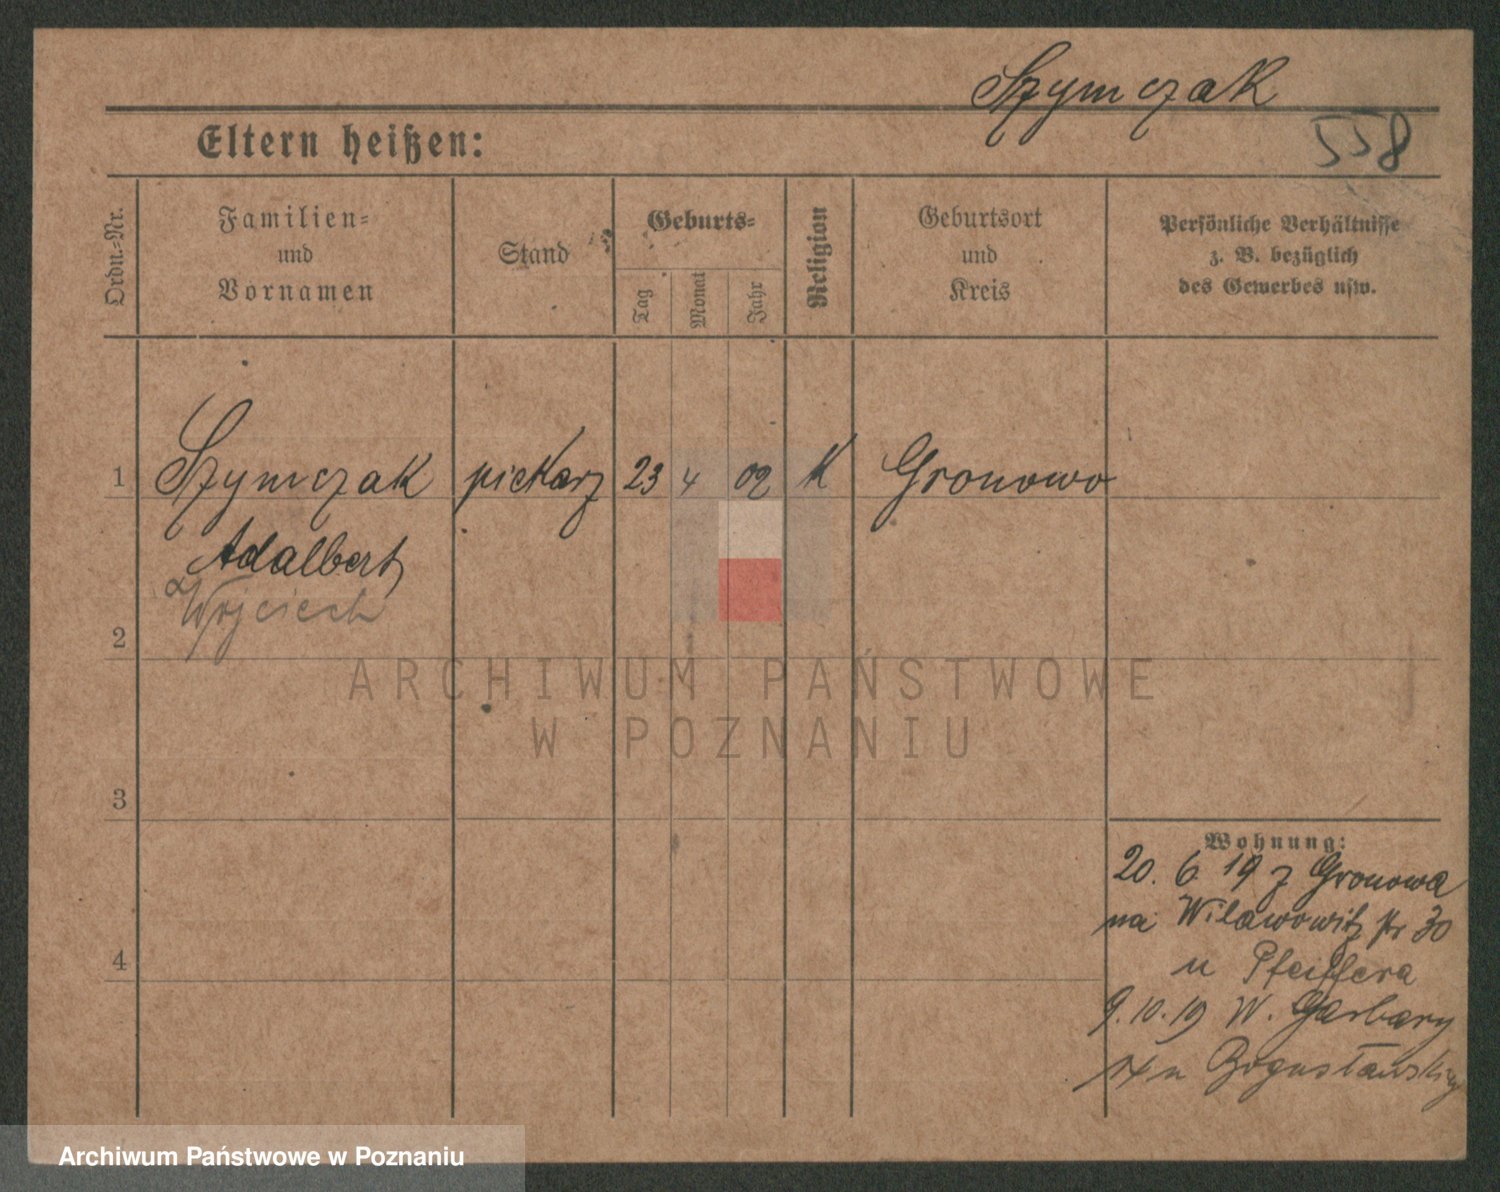 Szymczak
558
Eltern heißen:
Ordn.-Nr.
Familien-
und
Vornamen
Stand
Geburts-
Tag
Monat
Jahr
Religion
Geburtsort
und
Kreis
Persönliche Verhältnisse
z. B. bezüglich
des Gewerbes usw.
1
Szymczak
piekarz
23
4
02
K
Gronowo
Adalbert
Wojciech
2
ARCHIWUM PAŃSTWOWE
W POZNANIU
3
Wohnung:
20. 6 19 z Gronowa
na Wilamowitz 30
4
u Pfeiffera
9.10.19 W. Garbary
u Bogusławskiej
Archiwum Państwowe w Poznaniu